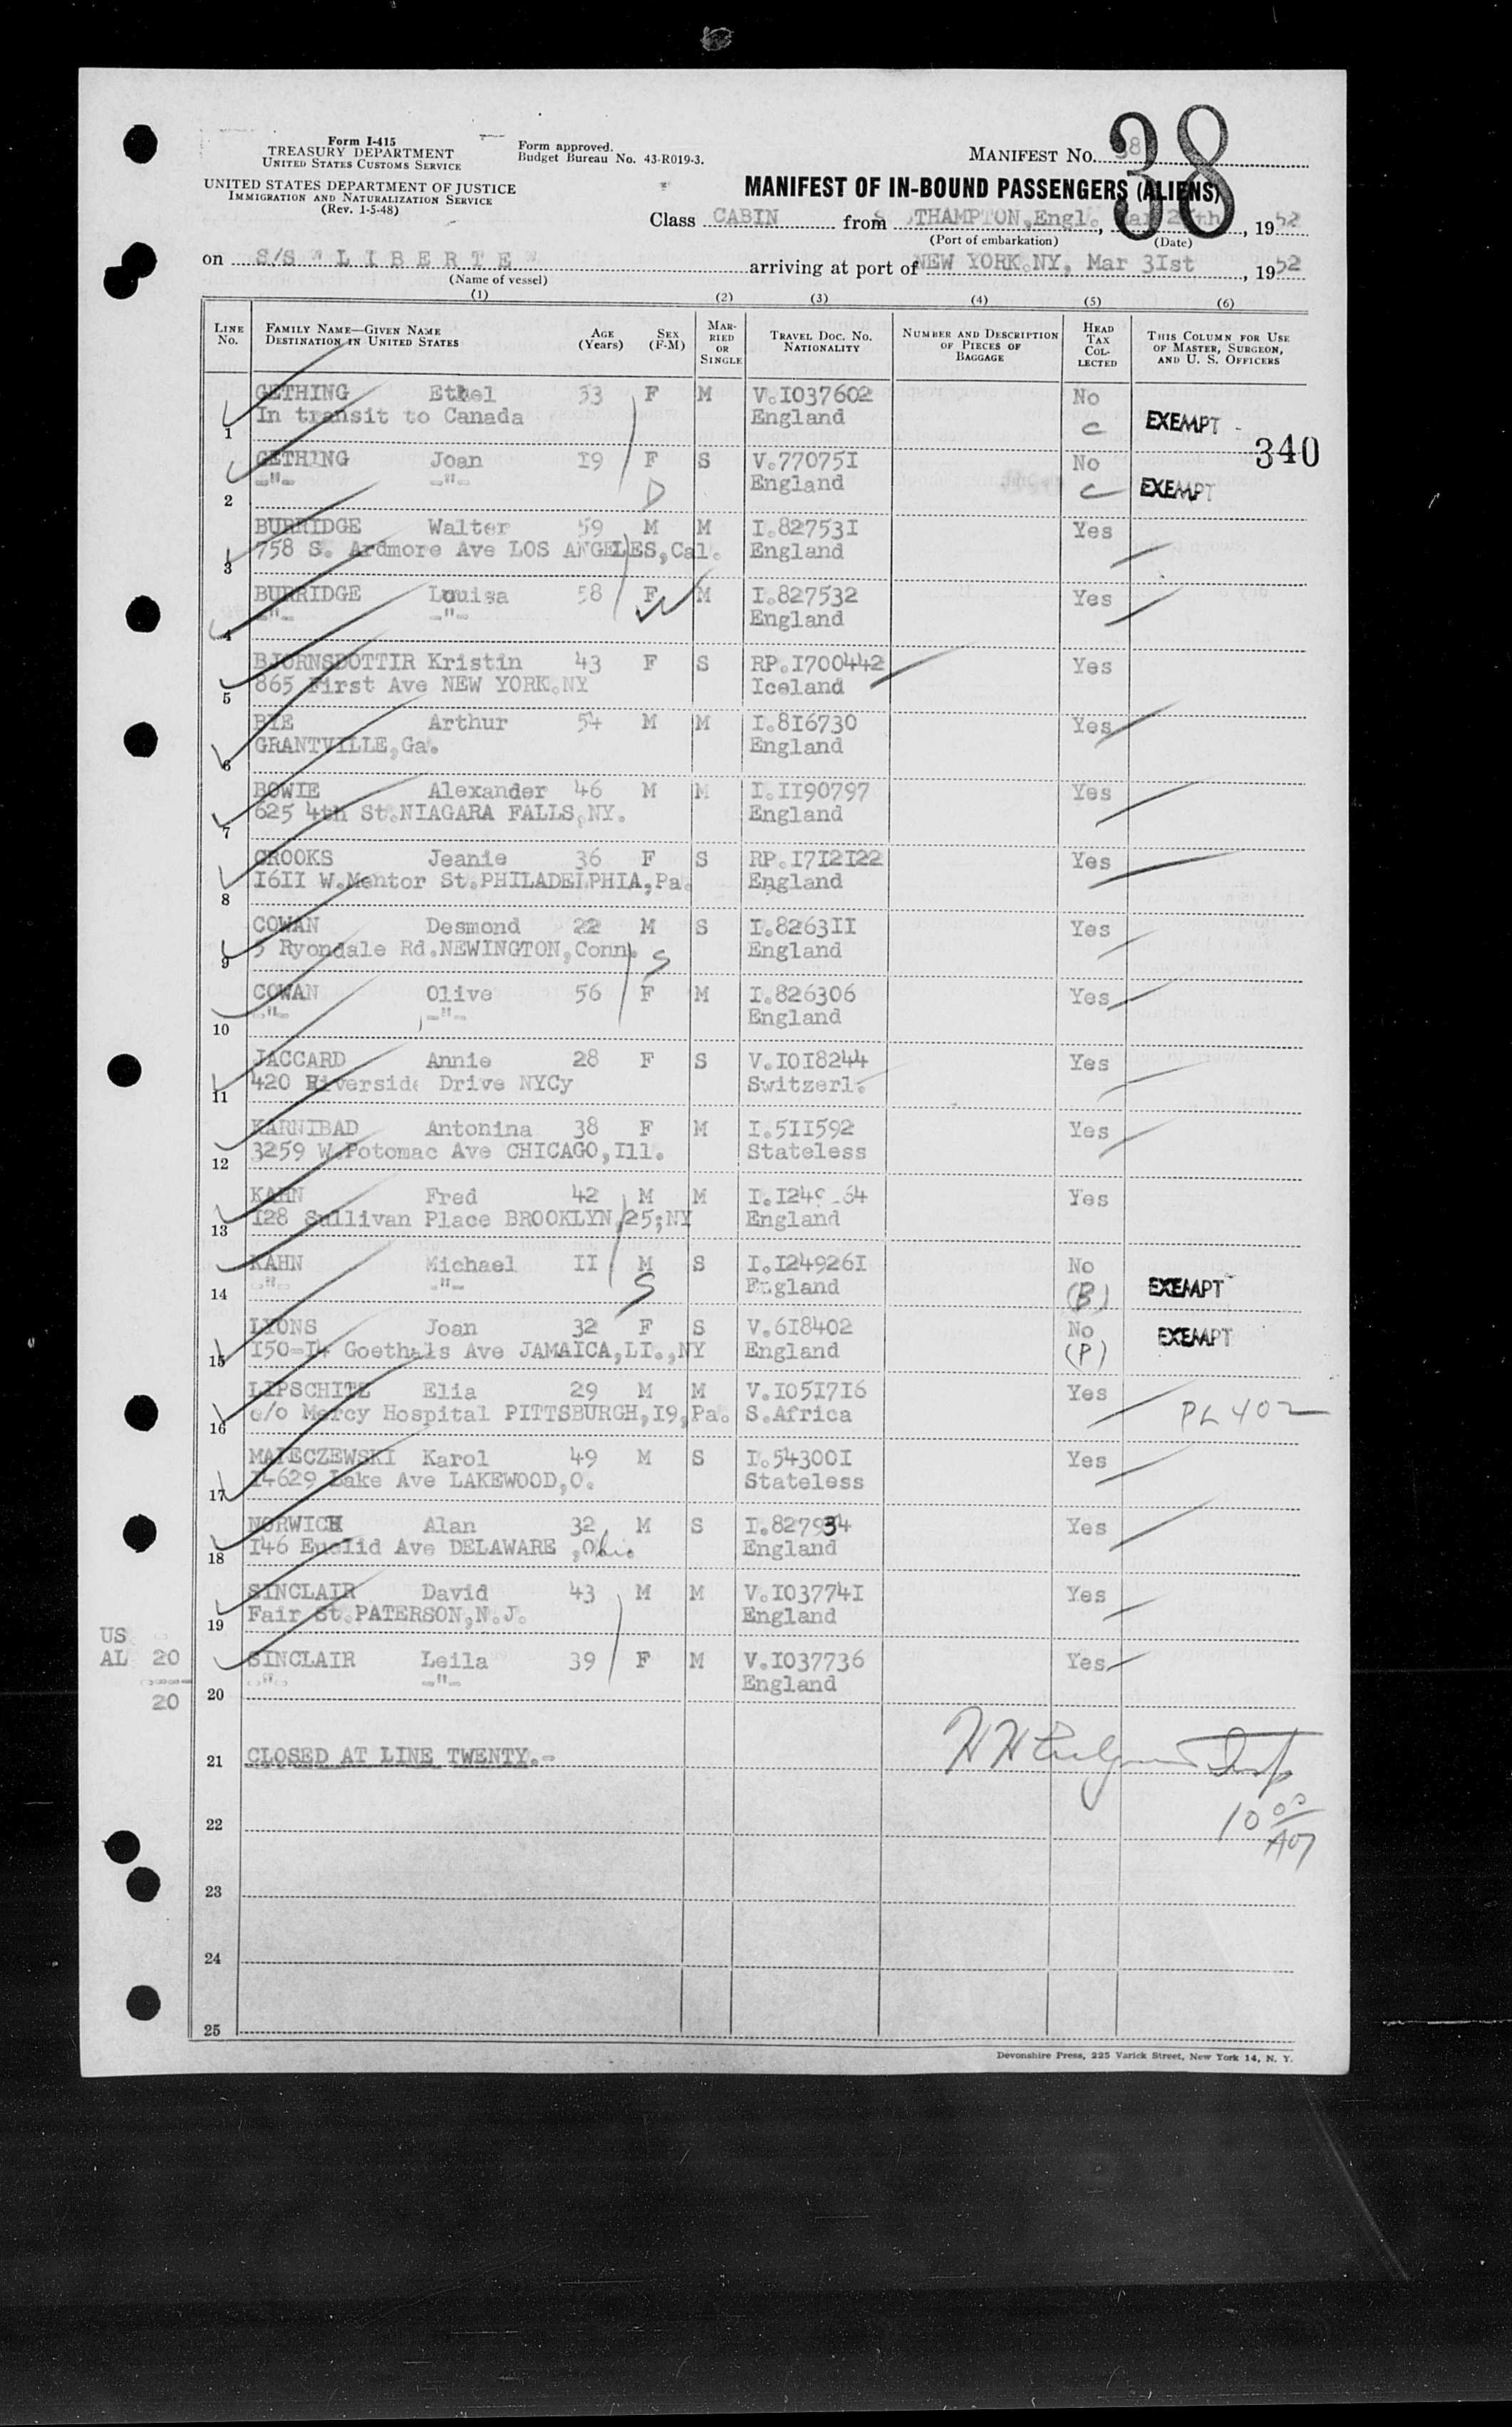 Form I-415
TREASURY DEPARTMENT
UNITED STATES CUSTOMS SERVICE
UNITED STATES DEPARTMENT OF JUSTICE
IMMIGRATION AND NATURALIZATION SERVICE
(Rev. 1-5-48)
Form approved.
Budget Bureau No. 43-R019-3.
MANIFEST No. 38
38
MANIFEST OF IN-BOUND PASSENGERS (ALIENS)
Class CABIN from THAMPTON,Engl., 1952
(Port of embarkation) (Date)
on S/S " L I B E R T E " arriving at port of NEW YORK.NY, Mar 3Ist, 1952
(Name of vessel)
(1) (2) (3) (4) (5) (6)
LINE No. FAMILY NAME—GIVEN NAME DESTINATION IN UNITED STATES AGE (Years) SEX (F-M) MARRIED OR SINGLE TRAVEL DOC. NO. NATIONALITY NUMBER AND DESCRIPTION OF PIECES OF BAGGAGE HEAD TAX COLLECTED THIS COLUMN FOR USE OF MASTER, SURGEON, AND U. S. OFFICERS
GETHING Ethel 53 F M V.I037602 No
1 In transit to Canada England C EXEMPT
340
GETHING Joan I9 F S V.77075I No
2 -"- -"- D England C EXEMPT
BURRIDGE Walter 59 M M I.82753I Yes
3 758 S. Ardmore Ave LOS ANGELES,Cal. England
BURRIDGE Louisa 58 F M I.827532 Yes
4 -"- -"- England
BJORNSDOTTIR Kristin 43 F S RP.I700442 Yes
5 865 First Ave NEW YORK.NY Iceland
BYE Arthur 54 M M I.8I6730 Yes
6 GRANTVILLE,Ga. England
BOWIE Alexander 46 M M I.II90797 Yes
7 625 4th St.NIAGARA FALLS,NY. England
CROOKS Jeanie 36 F S RP.I7I2I22 Yes
8 I6II W.Mentor St.PHILADELPHIA,Pa. England
COWAN Desmond 22 M S I.8263II Yes
9 5 Ryondale Rd.NEWINGTON,Conn. S England
COWAN Olive 56 F M I.826306 Yes
10 -"- -"- England
JACCARD Annie 28 F S V.I0I8244 Yes
11 420 Riverside Drive NYCy Switzerl.
KARNIBAD Antonina 38 F M I.5II592 Yes
12 3259 W.Potomac Ave CHICAGO,Ill. Stateless
KAHN Fred 42 M M Yes
13 I28 Sullivan Place BROOKLYN,25;NY England
KAHN Michael II M S I.I24926I No
14 -"- -"- S England (B) EXEMPT
LYONS Joan 32 F S V.6I8402 No
15 I50-I4 Goethals Ave JAMAICA,LI.,NY England (P) EXEMPT
LIPSCHITZ Elia 29 M M V.I05I7I6 Yes
16 c/o Mercy Hospital PITTSBURGH,I9,Pa. S.Africa PL 402
MALECZEWSKI Karol 49 M S I.54300I Yes
17 I4629 Lake Ave LAKEWOOD,O. Stateless
NORWICH Alan 32 M S I.827934 Yes
18 I46 Euclid Ave DELAWARE ,Ohio England
SINCLAIR David 43 M M V.I03774I Yes
19 Fair St.PATERSON,N.J. England
US
AL 20
20
SINCLAIR Leila 39 F M V.I037736 Yes
20 -"- -"- England
21 CLOSED AT LINE TWENTY.-
22
10 00
23
24
25
Devonshire Press, 225 Varick Street, New York 14, N. Y.